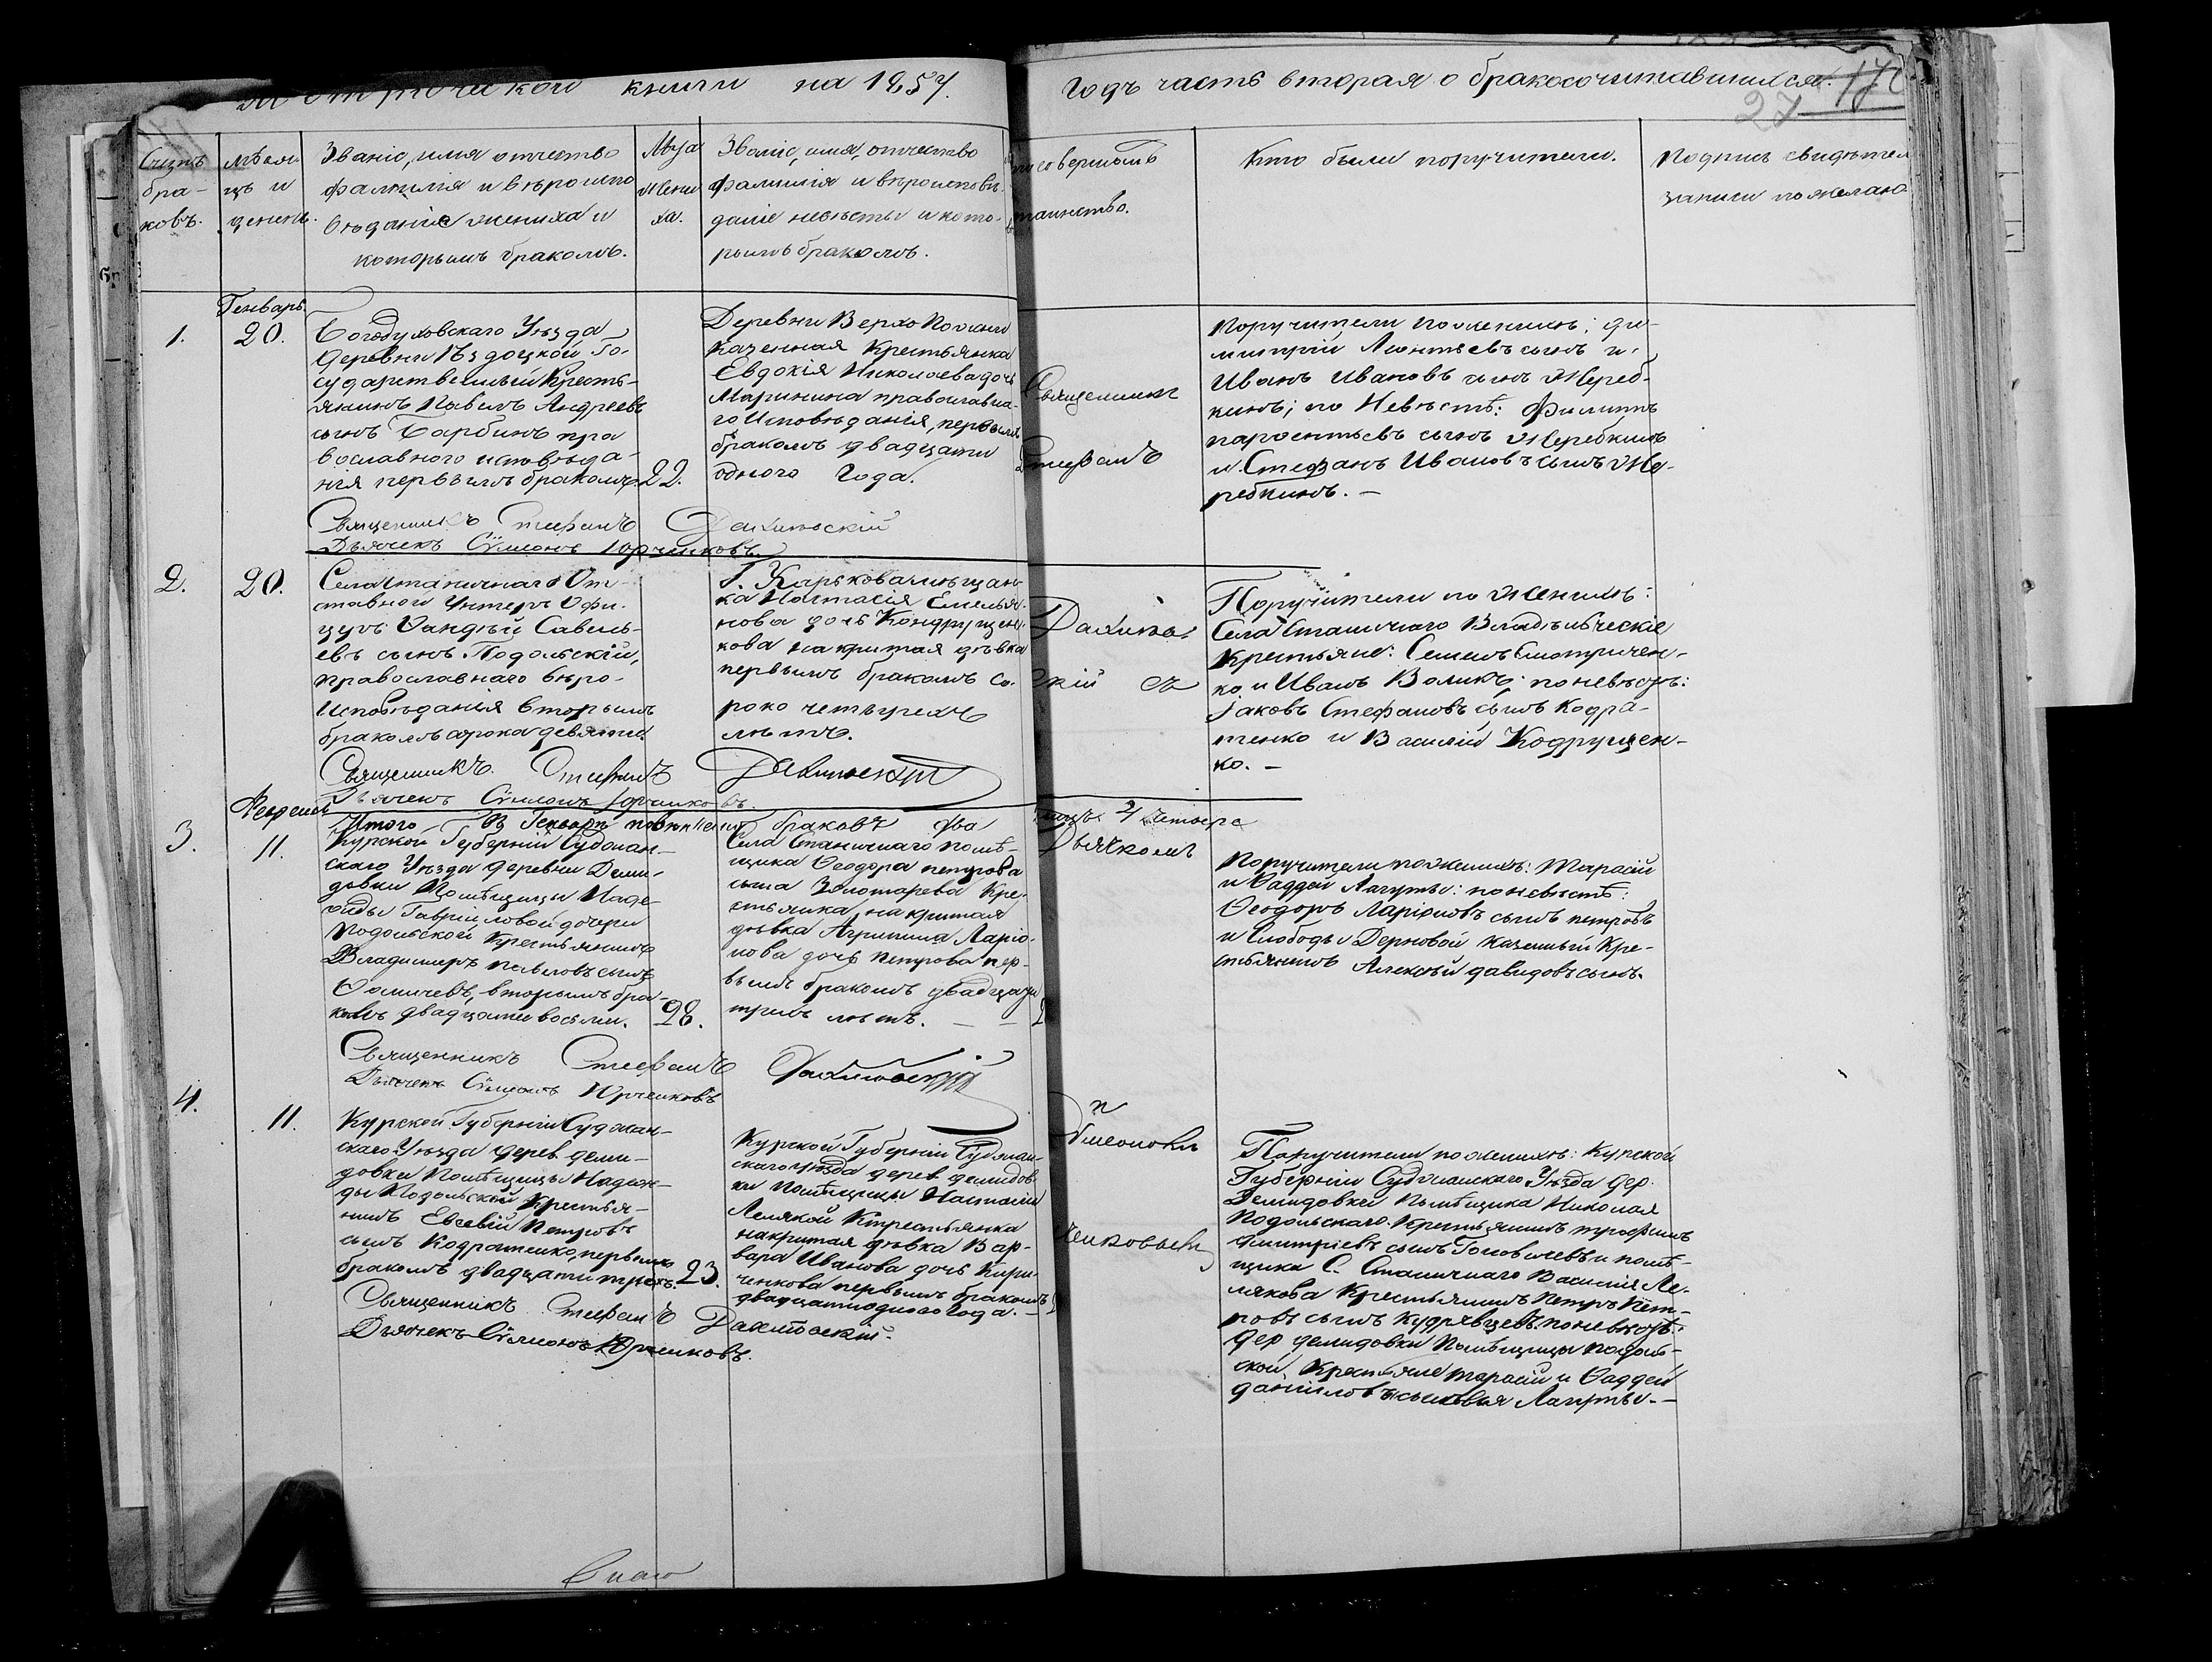 Метрической книги на 1857.
Годъ часть вторая о бракосочитавшихся.
27
Счетъ
бра-
ковъ.
мѣся-
цъ и
день.
Званіе, имя отчество
фамилія и вѣроиспо
вѣданіе жениха и
которымъ бракомъ.
Звание, имя, отчество
фамилія и вѣроисповѣ-
даніе невѣсты и кото-
рымъ бракомъ.
совершалъ
таинство.
Кто были поручители.
Подпись свидѣтел
записи по желаю
Генварь
1.
20.
Богодуховскаго Уѣзда
Деревни Го-
сударственный Кресть-
янинъ Павелъ Андреевъ
сынъ Барбинъ пра
вославного исповѣда-
нія первымъ бракомъ.
22.
Деревни Верхо
Казенная Крестьянка
Евдокія Николаева дочь
Маринина православна-
го Исповѣданія, первымъ
бракомъ двадцати
одного Года.
Священникъ
Стефанъ
Поручители по женихѣ: Ди-
митрій Леонтьевъ сынъ и
Иванъ Ивановъ сынъ Жереб-
кинъ; по Невѣстѣ: Филиппъ
сынъ Жеребкинъ
и Стефанъ Ивановъ сынъ Же-
ребкинъ. -
Священникъ Стефанъ
Дьячекъ Сѵмеонъ Юрченковъ.
2.
20.
Села Станичнаго От-
ставной Унтеръ Офи-
церъ Савель-
евъ сынъ Подольскій,
православнаго вѣро-
Исповѣданія вторымъ
бракомъ сорока девяти.
Г. Харькова мѣщан-
ка Настасія Емелья-
нова дочь Кондрущен-
кова накритая дѣвка
первымъ бракомъ со-
рока четырехъ
лѣтъ.
скій съ
Поручители по Женихѣ:
Села Станичнаго Владѣльческіе
Крестьяне: Семенъ Смотричен-
ко и Иванъ Воликъ; по невѣстѣ:
Іаковъ Стефановъ сынъ Кодра-
тенко и Василій Кодрущен-
ко. -
Священникъ Стефанъ
Дьячекъ Сѵмеонъ Юрченковъ.
Итого въ Генварѣ повѣнчано браковъ два
3.
11.
Курской Губерніи Суджан-
скаго Уѣзда деревни Деми-
довки Помѣщицы Наде-
жды Гавріиловой дочери
Подольской Крестьянинъ
Владимиръ Павловъ сынъ
вторымъ бра-
комъ двадцати восьми.
28.
Села Станичнаго помѣ-
щика Ѳеодора Петрова
сына Золотарева Кре-
стьянка, накритая
дѣвка Агрипина Ларіо-
нова дочь Петрова пер-
вымъ бракомъ двадцати
трехъ лѣтъ. - -
Дьячкомъ
Поручители по женихѣ: Тарасій
и Ѳаддей Лагуты: по невѣстѣ:
Ѳеодоръ Ларіоновъ сынъ Петровъ
и Слободы Дерновой казенный Кре-
стьянинъ Алексѣй Давидовъ сынъ.
Священникъ Стефанъ
Дьячекъ Сѵмеонъ Юрченковъ
4.
11.
Курской Губерніи Суджан-
скаго Уѣзда дерев. Деми-
довки Помѣщицы Надеж-
ды Подольской Крестья-
нинъ Евсевій Петровъ
сынъ Кодратенко, первымъ
бракомъ двадцати трехъ.
23.
Курской Губерніи Суджан-
скаго уѣзда дерев. Демидов-
ки Помѣщицы Настасіи
Крестьянка
накритая дѣвка Вар-
вара Иванова дочь Кири-
ченкова первымъ бракомъ
двадцати одного Года. -
Сѵмеономъ
Юрченковымъ
Поручители по женихѣ: Курской
Губерніи Суджанскаго Уѣзда дер.
Демидовки Помѣщика Николая
Подольскаго Крестьянинъ Трофимъ
Дмитріевъ сынъ и помѣ-
щика С. Станичнаго Василія Ле-
лякова Крестьянинъ Петръ Пет-
ровъ сынъ Кудрявцевъ. по невѣстѣ:
дер. Демидовки Помѣщицы Подоль-
ской, Крестьяне Тарасій и Ѳаддей
Даніиловы сыновья Лагуты. -
Священникъ Стефанъ
Дьячекъ Сѵмеонъ Юрченковъ.